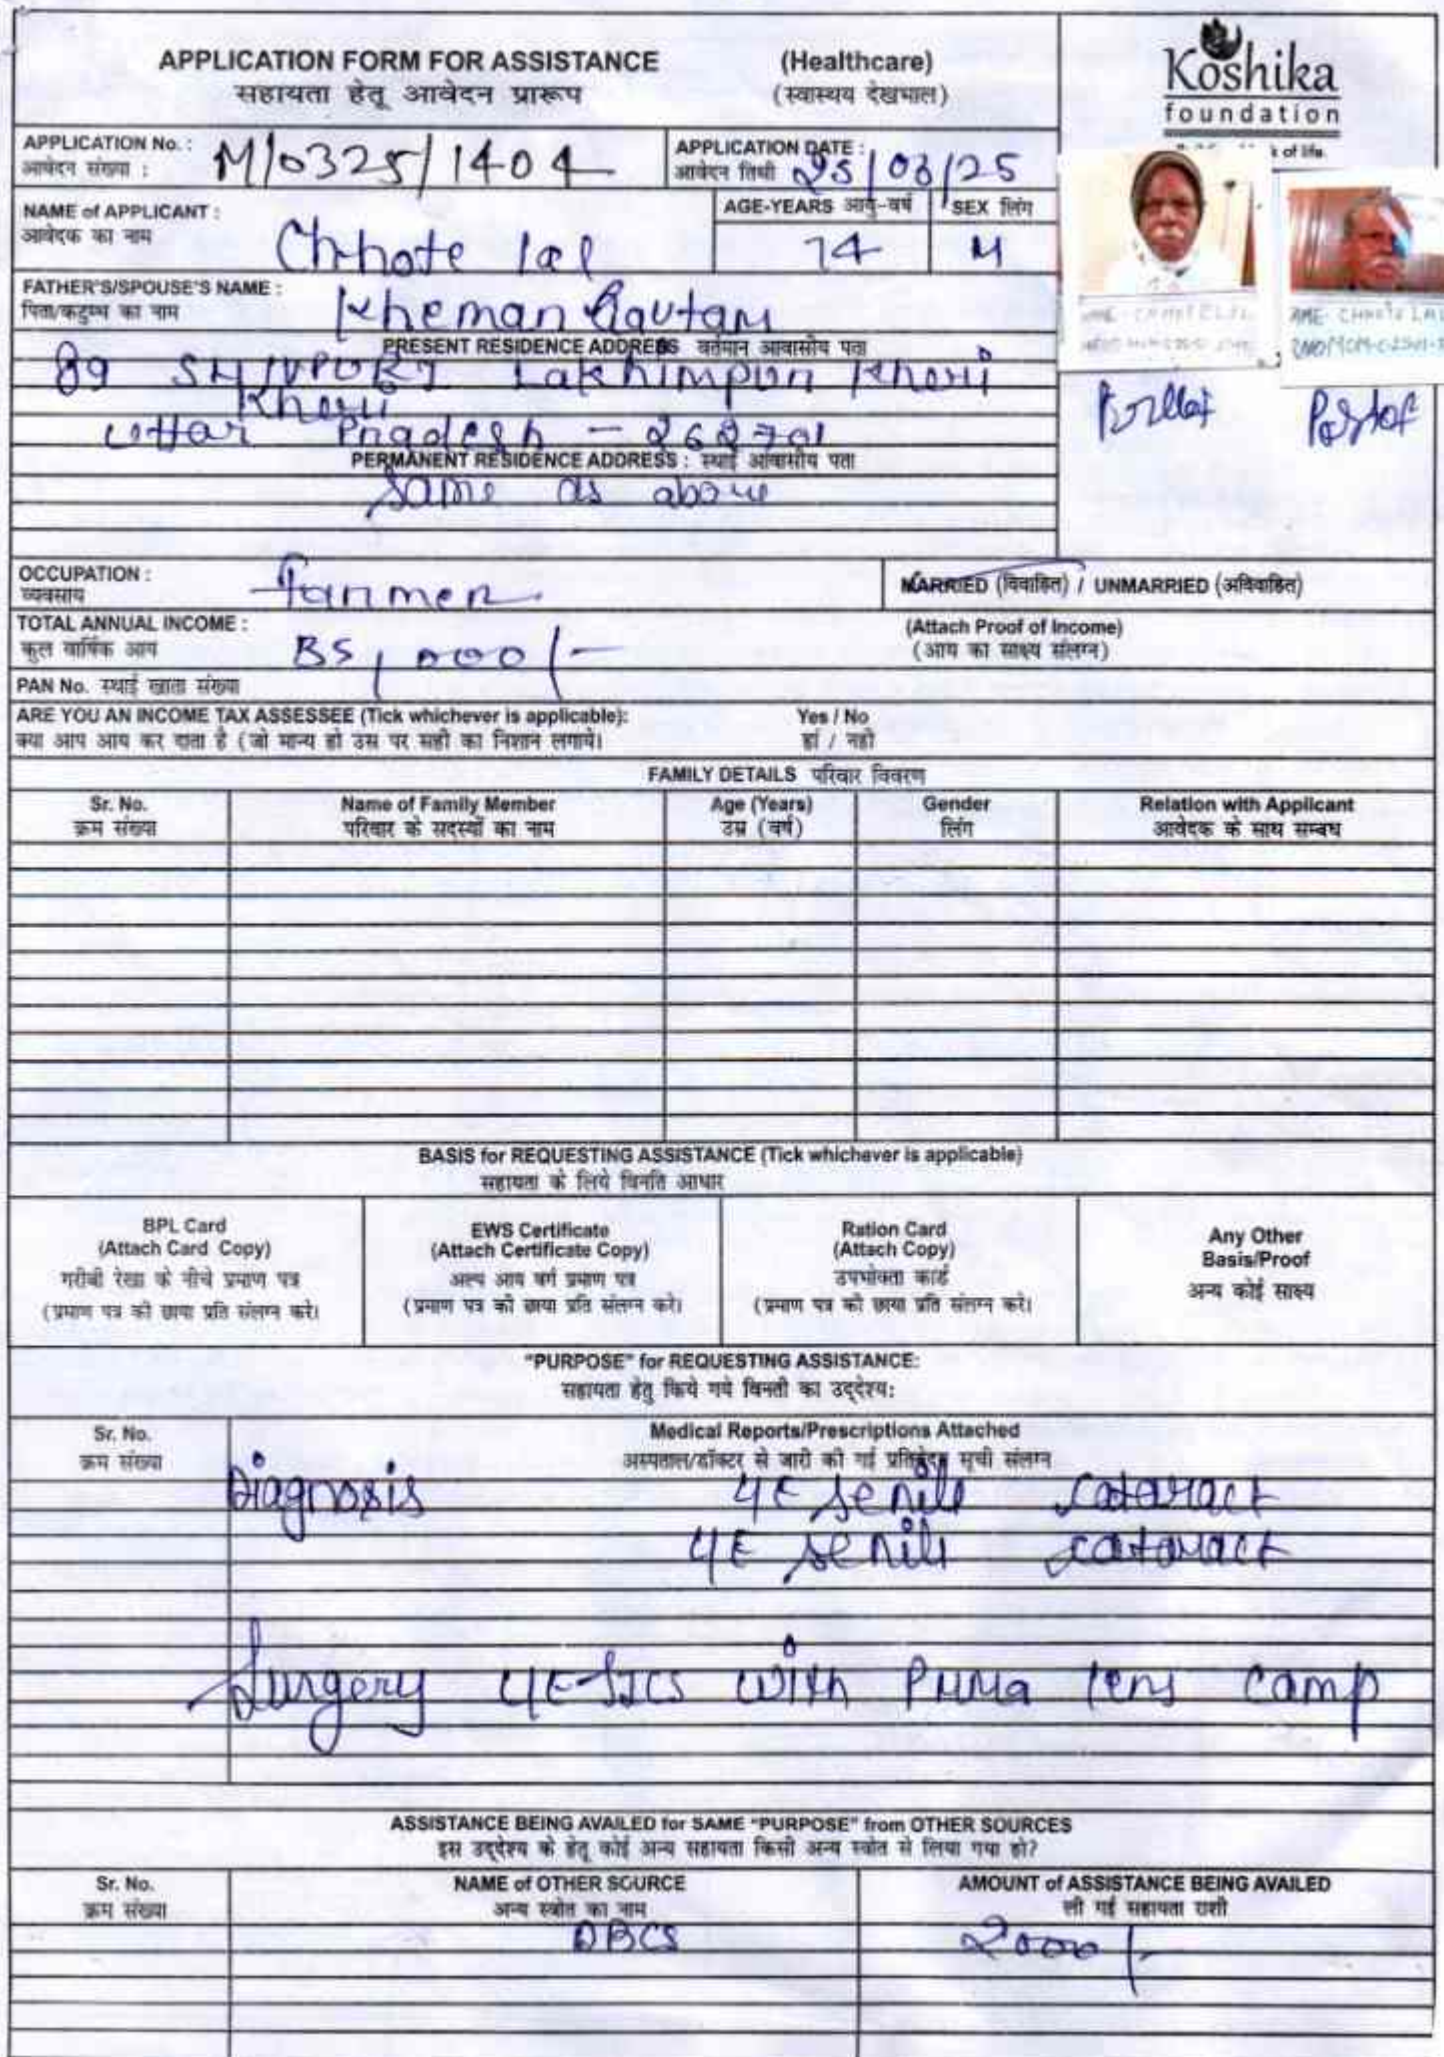 APPLICATION FORM FOR ASSISTANCE (Healthcare)
सहायता हेतू आवेदन प्रारूप (स्वास्थय देखभाल)
Koshika
foundation
of life.
APPLICATION No. : M/0325/1404
आवेदन संख्या :
APPLICATION DATE : 25/03/25
आवेदन तिथी
NAME of APPLICANT : Chhote lal
आवेदक का नाम
AGE-YEARS आयु-वर्ष 74
SEX लिंग M
FATHER'S/SPOUSE'S NAME : Kheman Gautam
पिता/कटुम्ब का नाम
PRESENT RESIDENCE ADDRESS वर्तमान आवासीय पता
89 SHIVPURI Lakhimpur Kheri
Kheri
Uttar Pradesh - 262701
PERMANENT RESIDENCE ADDRESS : स्थाई आवासीय पता
Same as above
CHHOTE LAL
OCCUPATION : Farmer
व्यवसाय
MARRIED (विवाहित) / UNMARRIED (अविवाहित)
TOTAL ANNUAL INCOME :
कुल वार्षिक आय
(Attach Proof of Income)
(आय का साक्ष्य संलग्न)
PAN No. स्थाई खाता संख्या
ARE YOU AN INCOME TAX ASSESSEE (Tick whichever is applicable): Yes / No
क्या आप आय कर दाता है (जो मान्य हो उस पर सही का निशान लगाये। हां / नही
FAMILY DETAILS परिवार विवरण
Sr. No. Name of Family Member Age (Years) Gender Relation with Applicant
क्रम संख्या परिवार के सदस्यों का नाम उम्र (वर्ष) लिंग आवेदक के साथ सम्बध
BASIS for REQUESTING ASSISTANCE (Tick whichever is applicable)
सहायता के लिये विनति आधार
BPL Card
(Attach Card Copy)
गरीबी रेखा के नीचे प्रमाण पत्र
(प्रमाण पत्र की छाया प्रति संलग्न करे।
EWS Certificate
(Attach Certificate Copy)
अल्प आय वर्ग प्रमाण पत्र
(प्रमाण पत्र की छाया प्रति संलग्न करे।
Ration Card
(Attach Copy)
उपभोक्ता कार्ड
(प्रमाण पत्र की छाया प्रति संलग्न करे।
Any Other
Basis/Proof
अन्य कोई साक्ष्य
"PURPOSE" for REQUESTING ASSISTANCE:
सहायता हेतु किये गये विनती का उद्देश्य:
Sr. No. Medical Reports/Prescriptions Attached
क्रम संख्या अस्पताल/डॉक्टर से जारी की गई प्रतिवेदन सूची संलग्न
Diagnosis senile cataract
senile cataract
Surgery SICS with PMMA lens camp
ASSISTANCE BEING AVAILED for SAME "PURPOSE" from OTHER SOURCES
इस उद्देश्य के हेतू कोई अन्य सहायता किसी अन्य स्त्रोत से लिया गया हो?
Sr. No. NAME of OTHER SOURCE AMOUNT of ASSISTANCE BEING AVAILED
क्रम संख्या अन्य स्त्रोत का नाम ली गई सहायता राशी
DBCS 2000/-